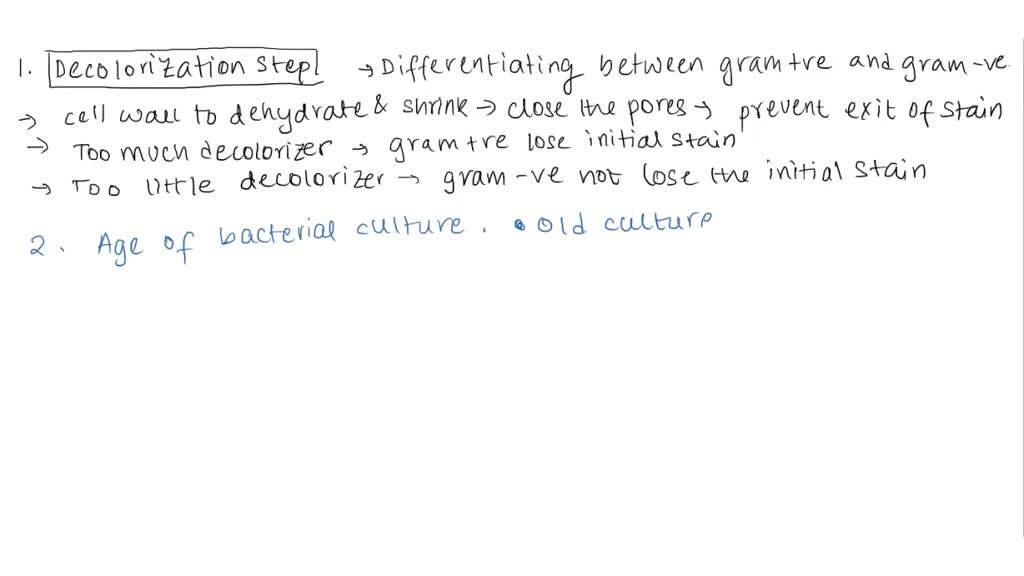 1. Decolorization step → Differentiating between gram+ve and gram-ve
→ cell wall to dehydrate & shrink → close the pores → prevent exit of stain
→ Too much decolorizer → gram+re lose initial stain
→ Too little decolorizer → gram-ve not lose the initial stain
2. Age of bacterial culture. • Old culture